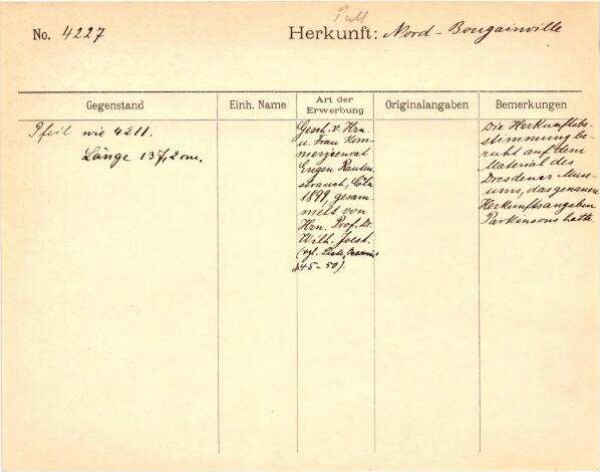 No. 4227
Herkunft: Nord-Bougainville
Gegenstand
Einh. Name
Art der
Erwerbung
Originalangaben
Bemerkungen
Pfeil wie 4211.
Länge 137,2 cm.
Gesch. v. Hrn.
u. Frau Kom-
merzienrat
Eugen Rauten-
strauch, Cöln
1899, gesam-
melt von
Hrn. Prof. Dr.
Wilh. Joest.
(vgl. Liste
45-50).
Die Herkunftsbe-
stimmung be-
ruht auf dem
Material des
Dresdener Muse-
ums, das genauere
Herkunftsangaben
Parkinsons hatte